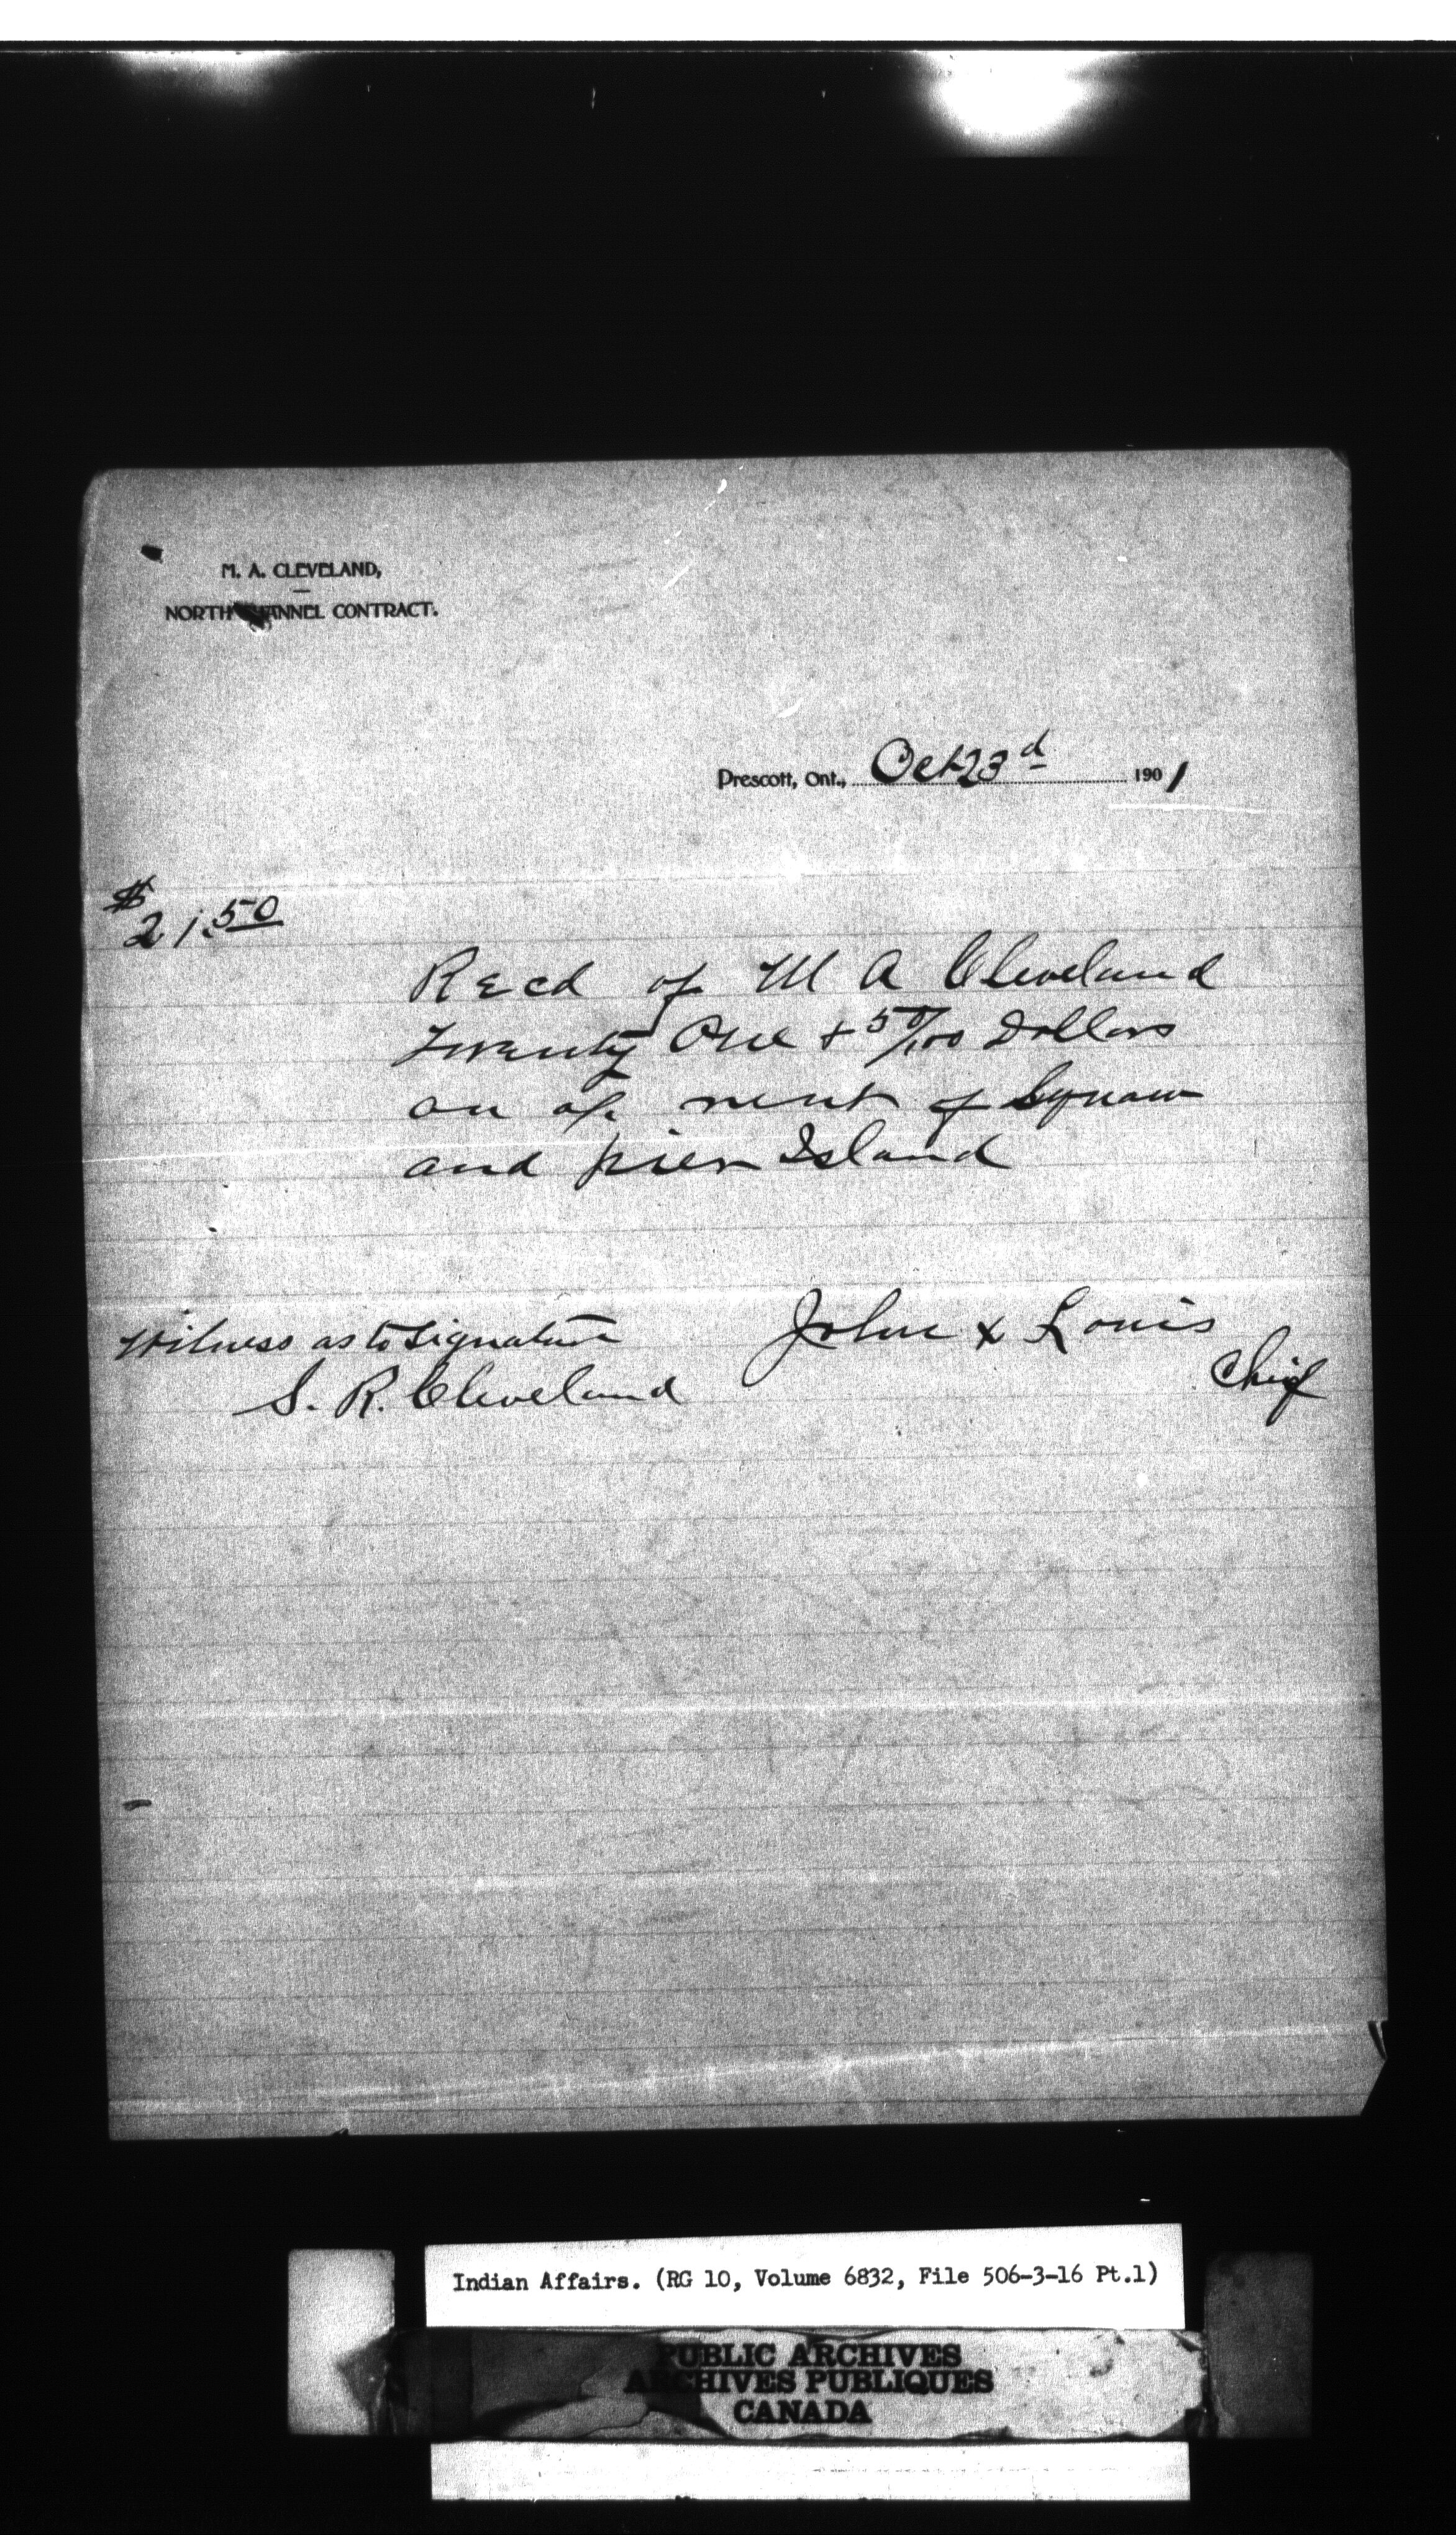 M. A. CLEVELAND,
NORTH CHANNEL CONTRACT.
Prescott, Ont., Oct 23d 1901
$21.50
Recd of M A Cleveland
Twenty One + 50/100 Dollars
on a/c rent of Squaw
and pier Island
Witness as to Signature
S. R. Cleveland
John x Louis
Chief
Indian Affairs. (RG 10, Volume 6832, File 506-3-16 Pt.1)
PUBLIC ARCHIVES
ARCHIVES PUBLIQUES
CANADA